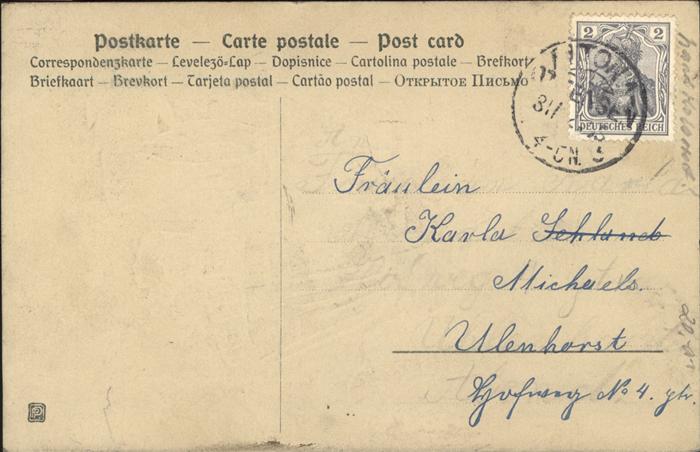 Postkarte — Carte postale — Post card
Correspondenzkarte — Levelező-Lap — Dopisnice — Cartolina postale — Brefkort
Briefkaart — Brevkort — Tarjeta postal — Cartão postal — ОТКРЫТОЕ ПИСЬМО
2 2
DEUTSCHES REICH
4-5N.
Fräulein
Karla
Michaels.
Ulenhorst
Hofweg No 4. ptr.